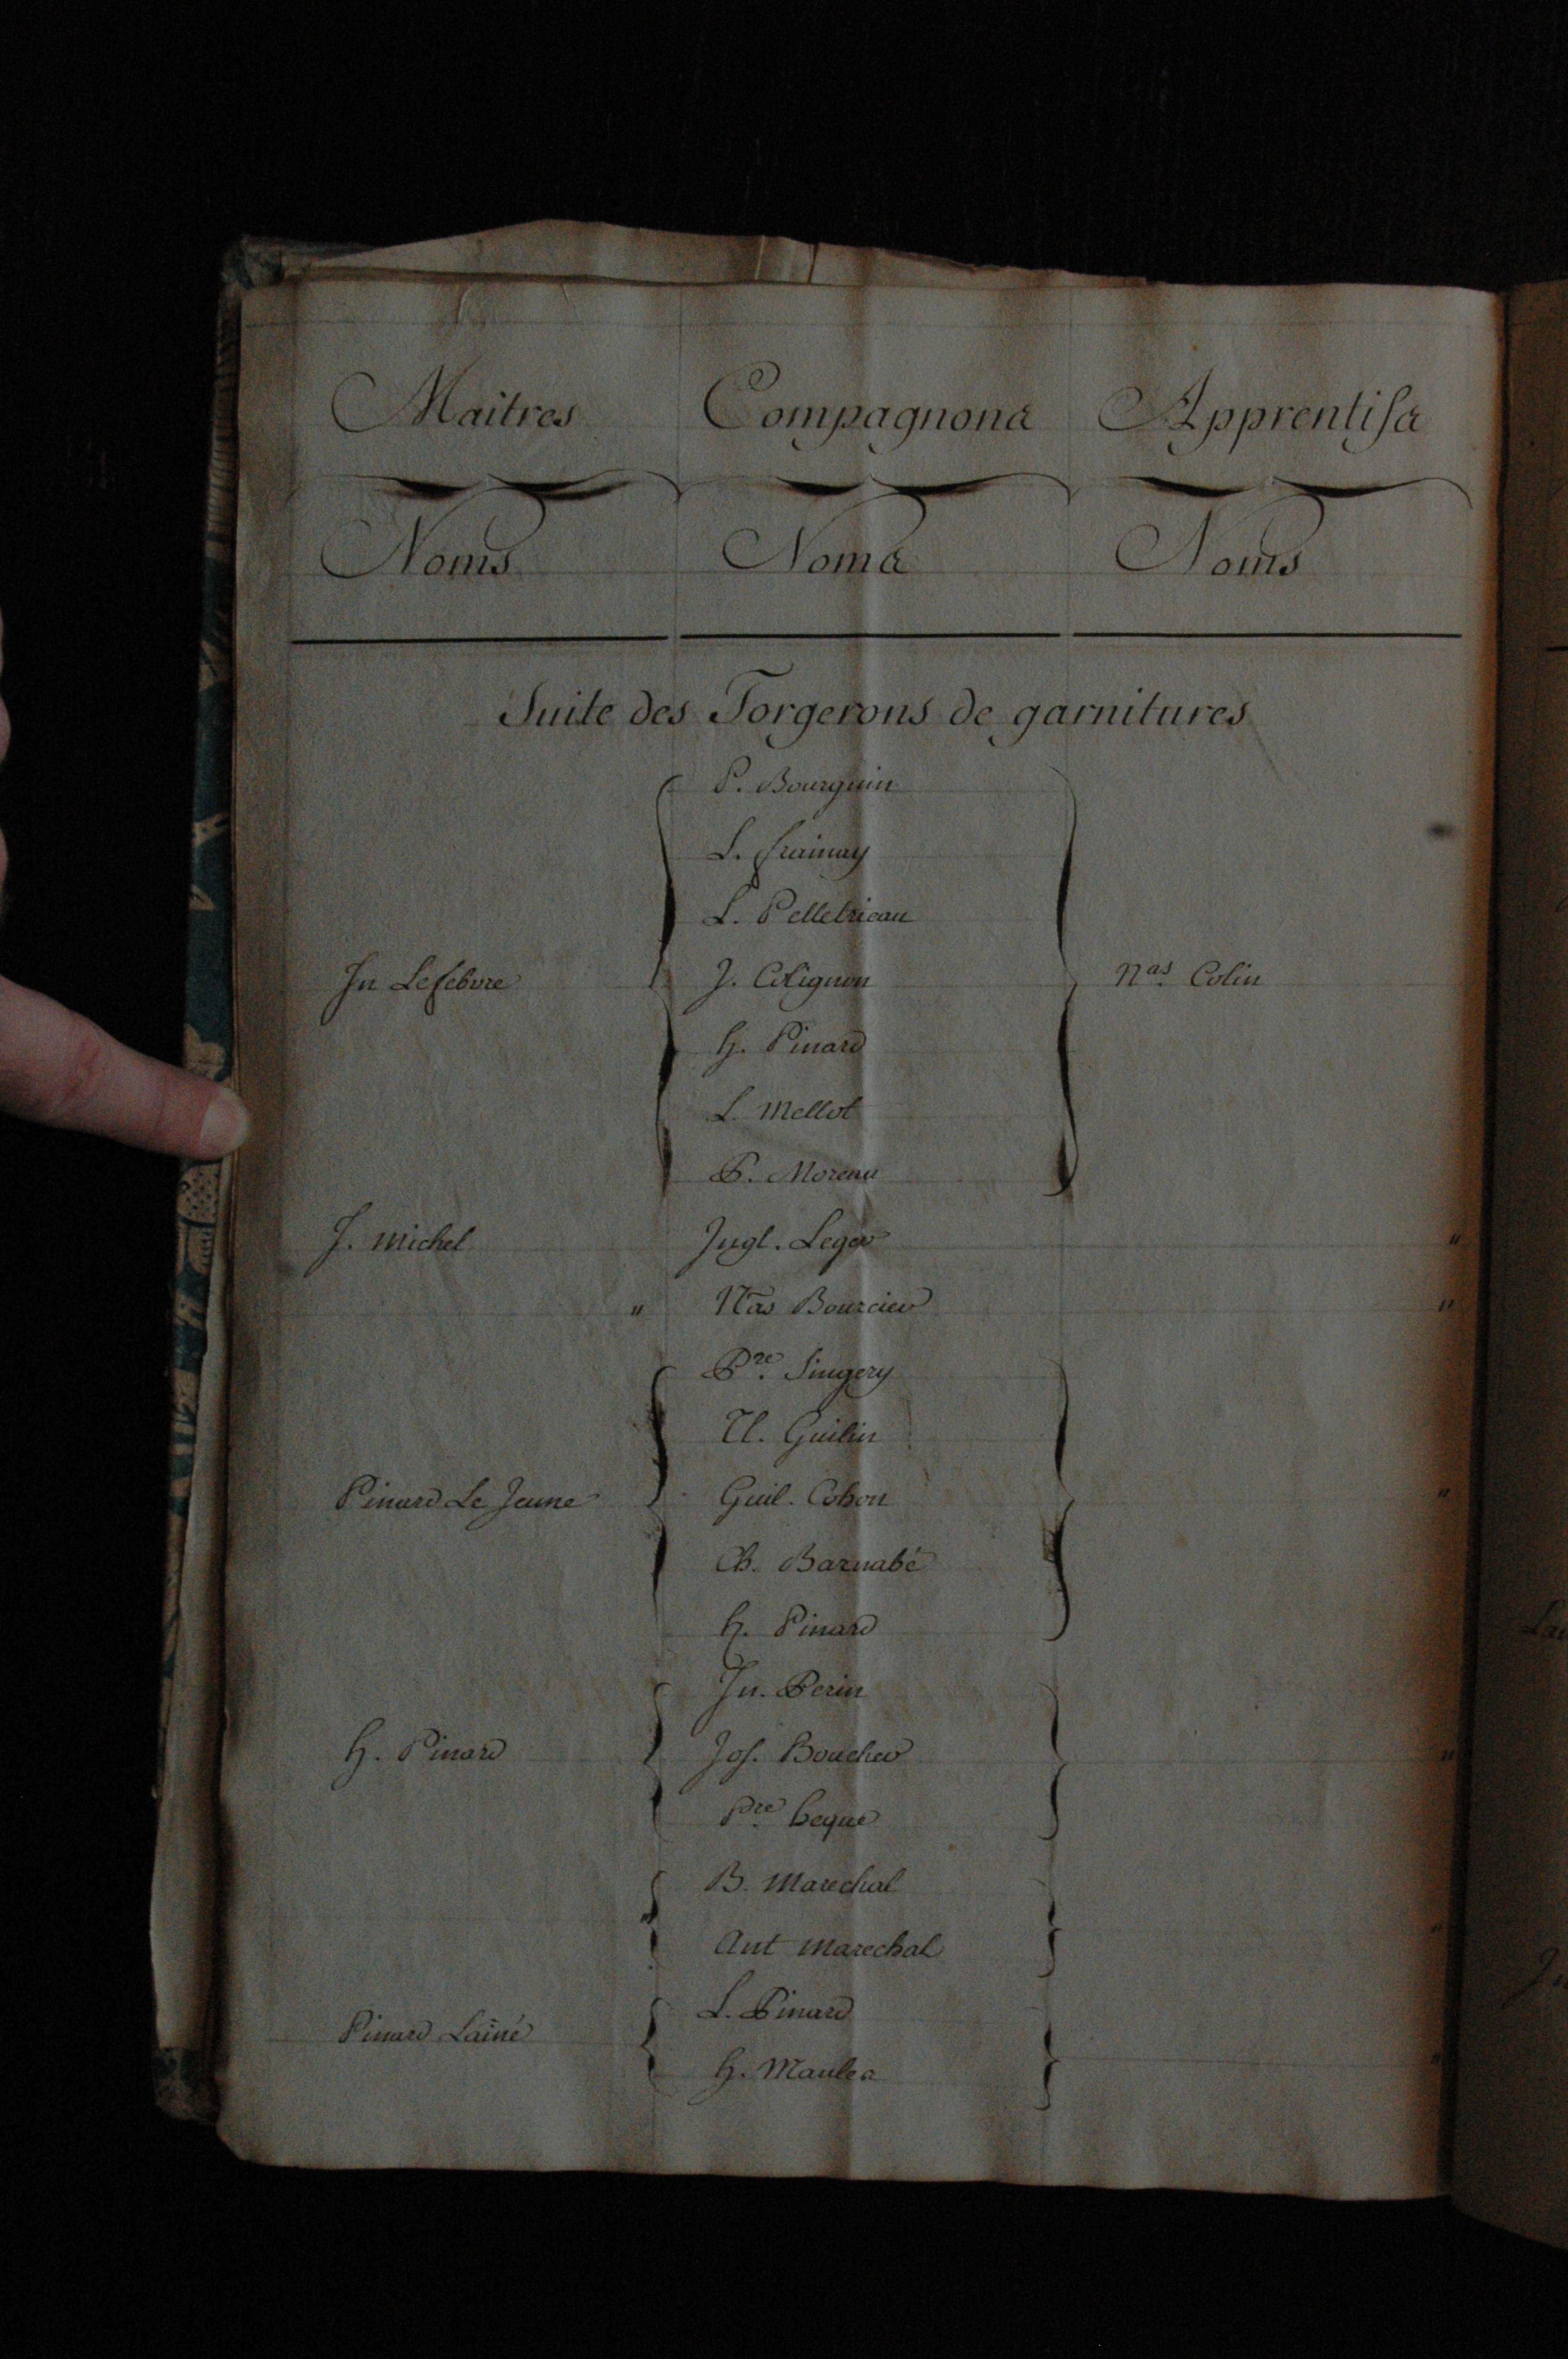 Maitres Compagnons Apprentifs
Noms Noms Noms
Suite des Forgerons de garnitures
P. Bourguin
L. frainay
L. Pelletrieau
Jn Lefebvre J. Colignon Nas. Colin
h. Pinard
L. Mellot
P. Moreau
J. michel Jngl. Leger "
" Nas Bourcier "
Pre. Singery
Guilin
Pinard Le Jeune Guil. Cohon "
Ch. Barnabé
h. Pinard
Jn. Perin
h. Pinard Jos. Boucher "
Pre. beque
B. Marechal
" Ant marechal "
L. Pinard
Pinard Lainé "
h. Maules